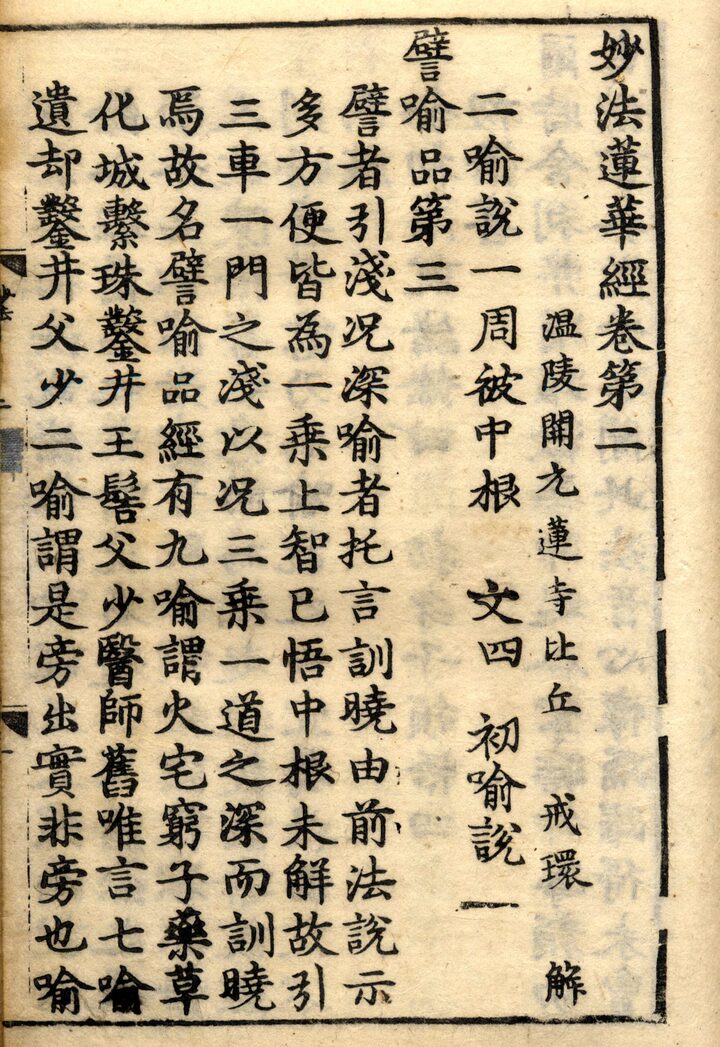 妙法蓮華經卷第二
温陵開元蓮寺比丘 戒環 解
二喻說一周被中根 文四 初喻說一
譬喻品第三
譬者引淺况深喻者托言訓曉由前法說示
多方便皆為一乗上智已悟中根未解故引
三車一門之淺以况三乗一道之深而訓曉
焉故名譬喻品經有九喻謂火宅窮子藥草
化城繫珠鑿井王髻父少醫師舊唯言七喻
遺却鑿井父少二喻謂是旁出實非旁也喻